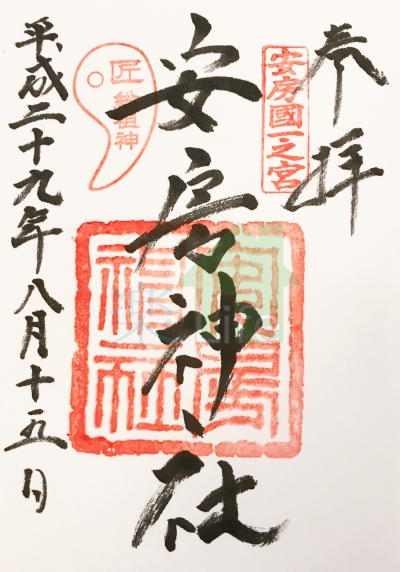 奉拝
安房國一之宮
安房神社
安房神社
匠
総祖神
平成二十九年八月十五日